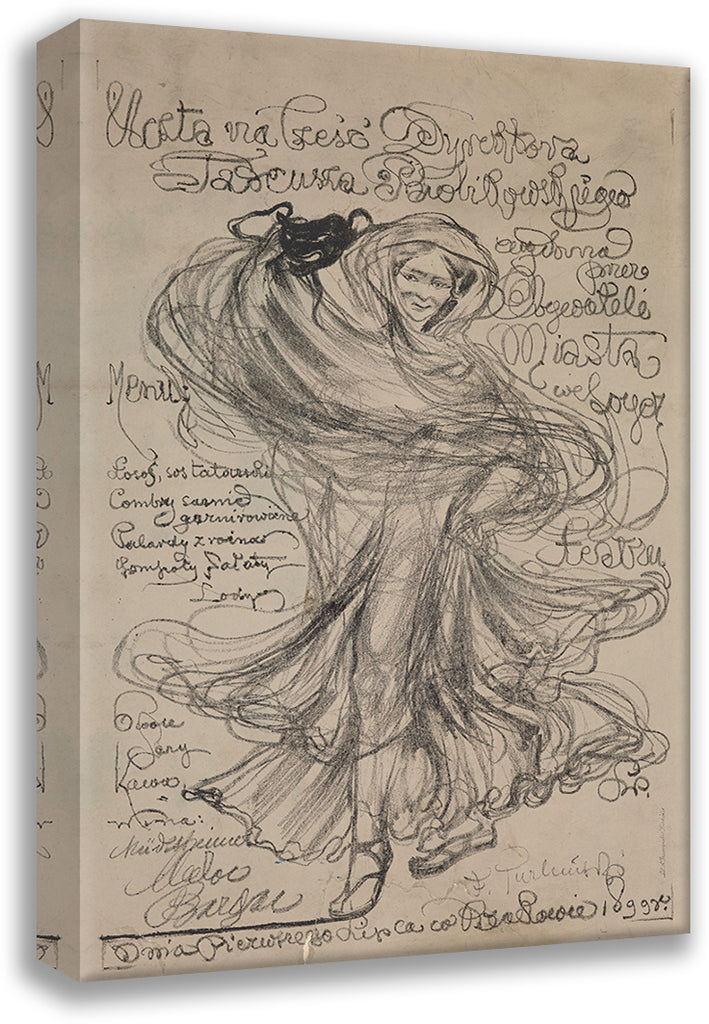 Uczta na Cześć Dyrektora
Tadeusza Pawlikowskiego
wydana
przez
Obywateli
Miasta
we Foyer
Teatru
Menu:
Łosoś, sos tatarski
Comber sarni
garnirowane
Pulardy z rożna
Kompoty Sałaty
Lody
Owoce
Sery
Kawa
Wina:
Médoc
Dnia Pierwszego Lipca w Krakowie 1899 r.